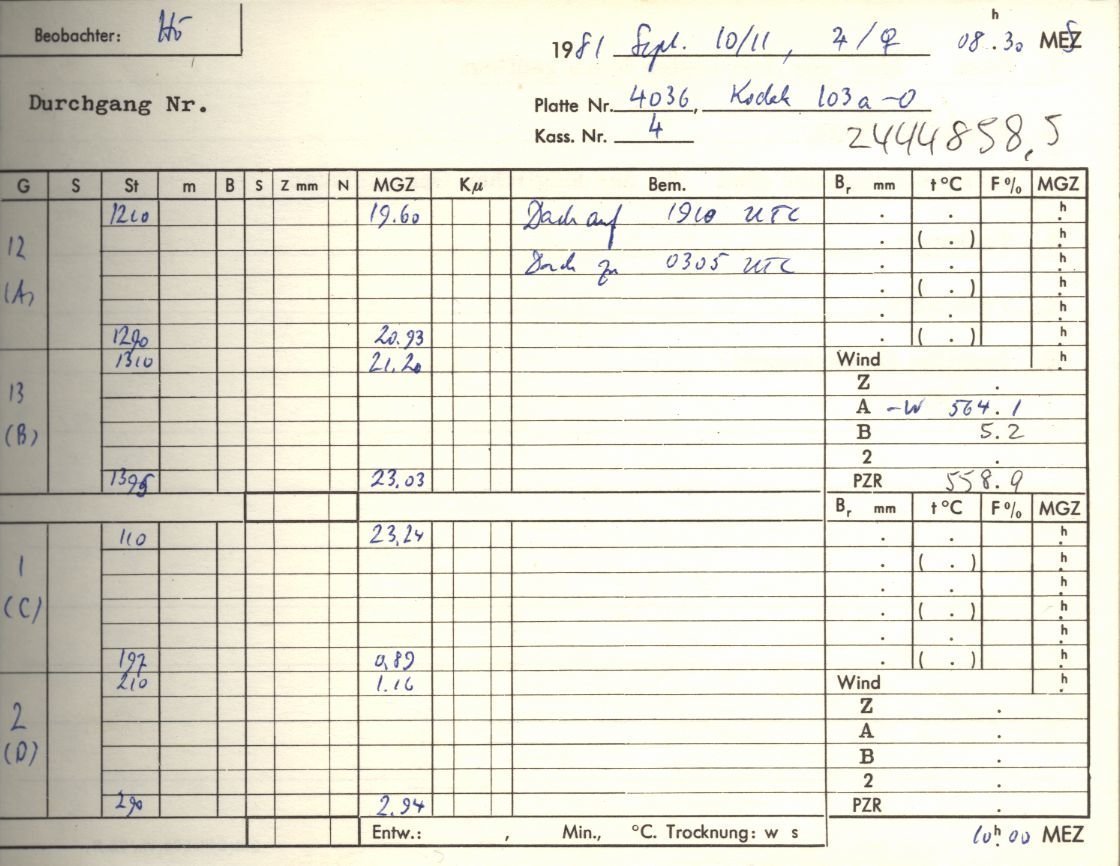 Beobachter: Hö
1981 Sept. 10/11, ♃/♀ 08.30 h MEZ
Durchgang Nr.
Platte Nr. 4036, Kodak 103a-O
Kass. Nr. 4
2444858,5
G S St m B S Z mm N MGZ Kμ Bem. Br mm t°C F% MGZ
1210 19.60 Dach auf 1910 UTC . . h
12 . ( . ) h
Dach zu 0305 UTC . . h
(A) . ( . ) h
. . h
1290 20.93 . ( . ) h
1310 21.20 Wind h
13 Z .
A -W 564.1
(B) B 5.2
2 .
1395 23.03 PZR 558.9
Br mm t°C F% MGZ
110 23,24 . . h
1 . ( . ) h
. . h
(C) . ( . ) h
. . h
197 0,89 . ( . ) h
210 1.16 Wind h
2 Z .
A .
(D) B .
2 .
290 2.94 PZR .
Entw.: , Min., °C. Trocknung: w s
10h.00 MEZ